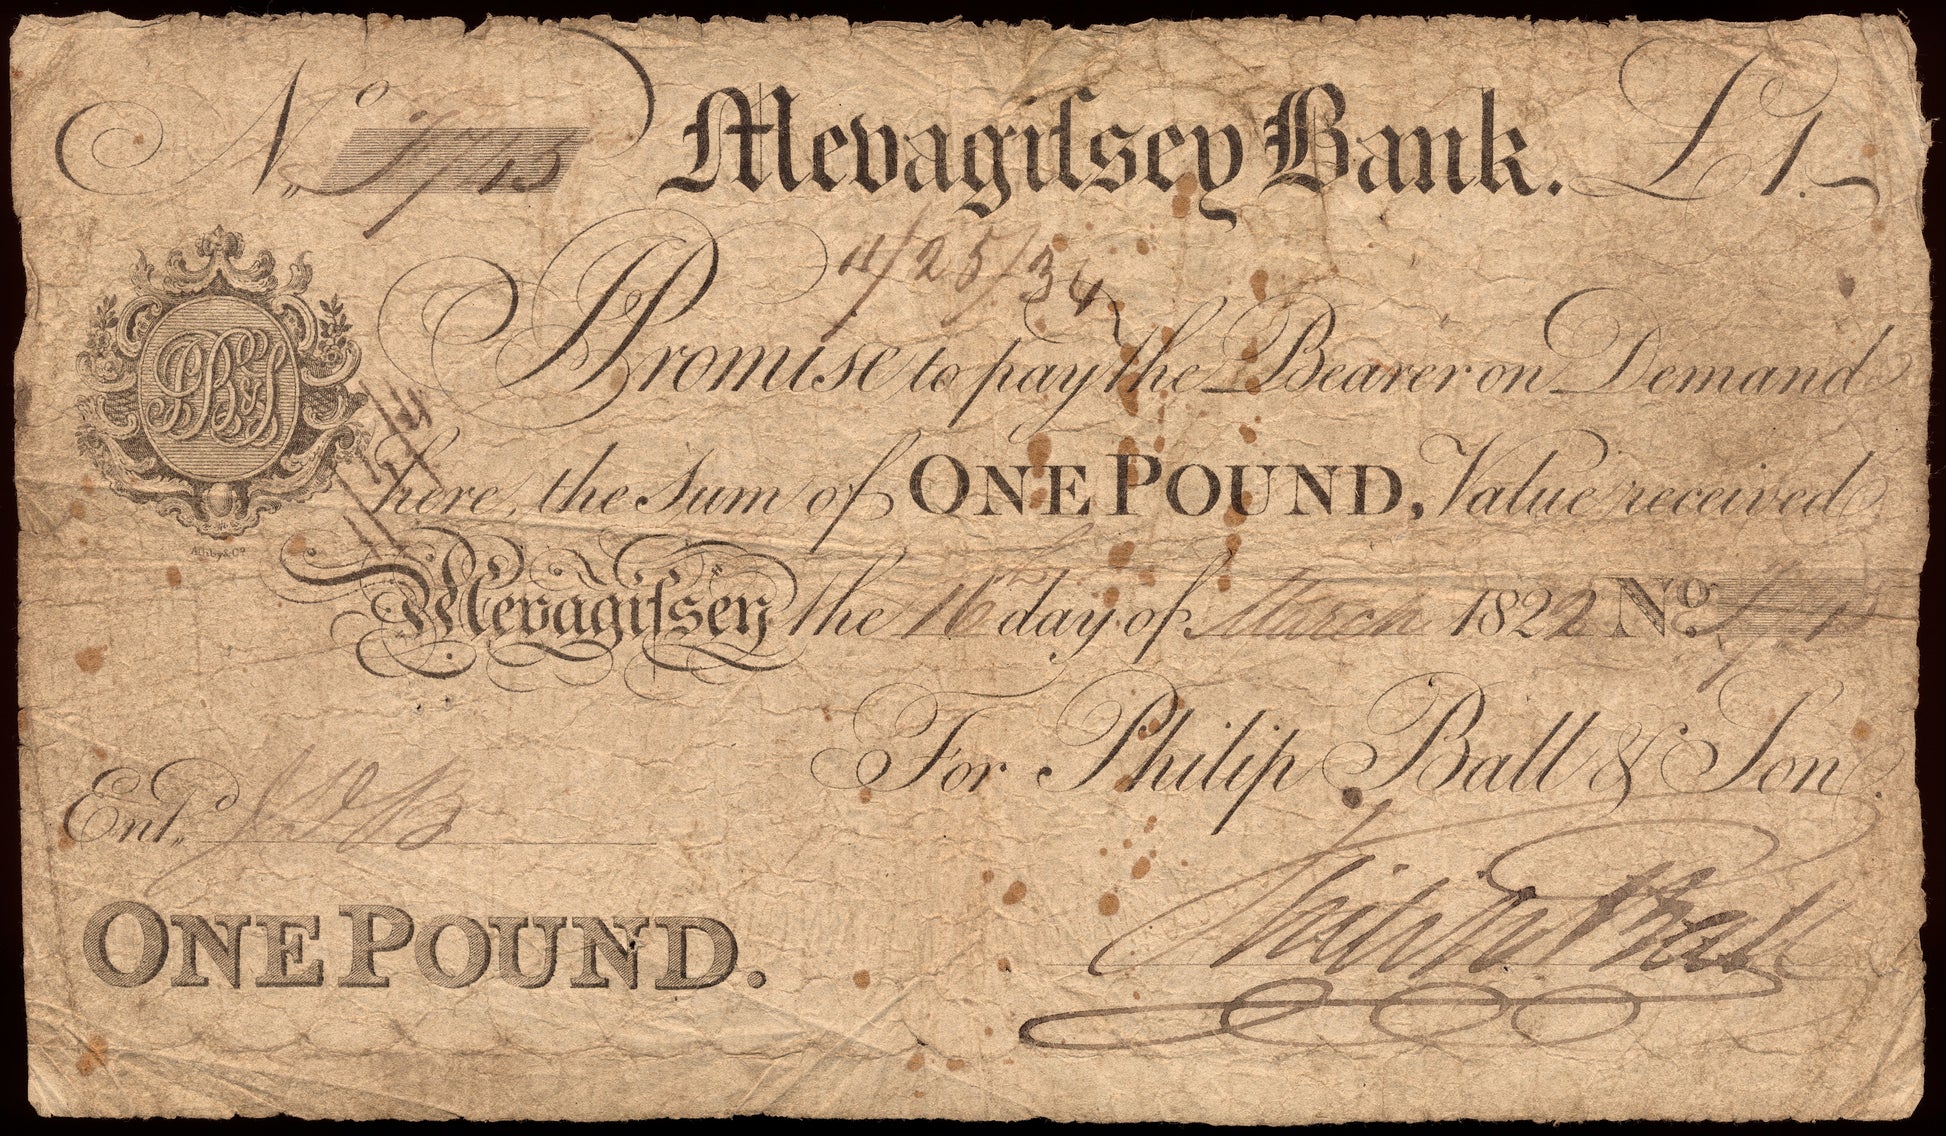 No. Mevagiſsey Bank. £1.
11/25/34
I Promise to pay the Bearer on Demand
here, the Sum of ONE POUND, Value received
Mevagiſsey the 16th day of March 1822 No.
For Philip Ball & Son.
Entd.
ONE POUND.
Philip Ball
PB&S
Ashby & Co.